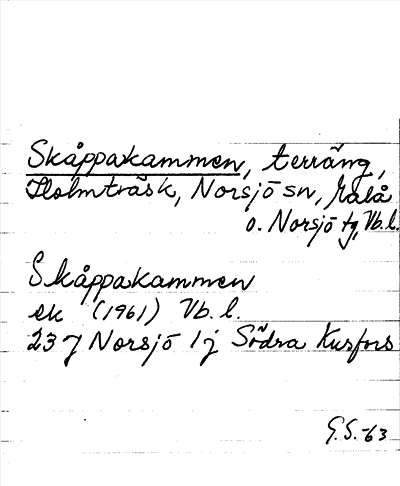 Skåppakammen, terräng,
Holmträsk, Norsjö sn, Malå
o. Norsjö tg, Vb.l.
Skåppakammen
ek (1961) Vb. l.
23 J Norsjö 1 j Södra Kusfors
G.S.-63